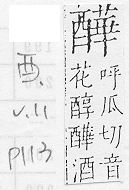 呼瓜切音
花醇酒
酉.
V.11
P113